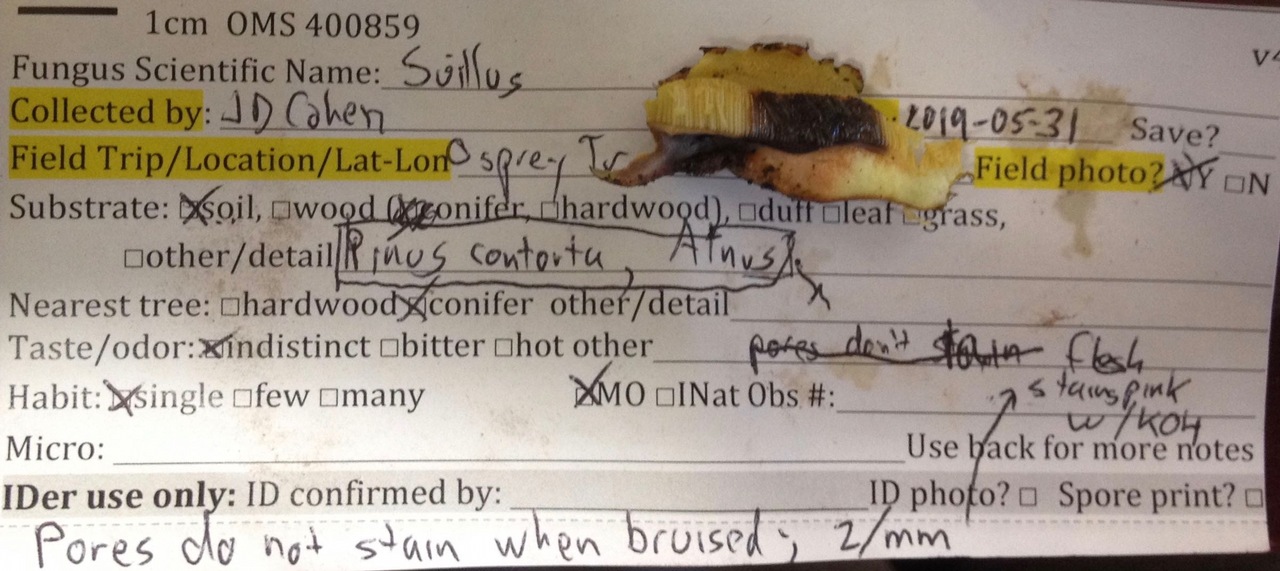 1cm OMS 400859
V4
Fungus Scientific Name: Suillus
Collected by: JD Cohen 2019-05-31 Save?
Field Trip/Location/Lat-Lon Osprey Tr Field photo? ☒Y □N
Substrate: ☒soil, □wood (☒conifer, □hardwood), □duff □leaf □grass,
□other/detail Pinus contorta, Alnus
Nearest tree: □hardwood ☒conifer other/detail
Taste/odor: ☒indistinct □bitter □hot other pores don't stain flesh
stains pink
Habit: ☒single □few □many ☒MO □INat Obs #:
w/KOH
Micro: Use back for more notes
IDer use only: ID confirmed by: ID photo? □ Spore print? □
Pores do not stain when bruised; 2/mm